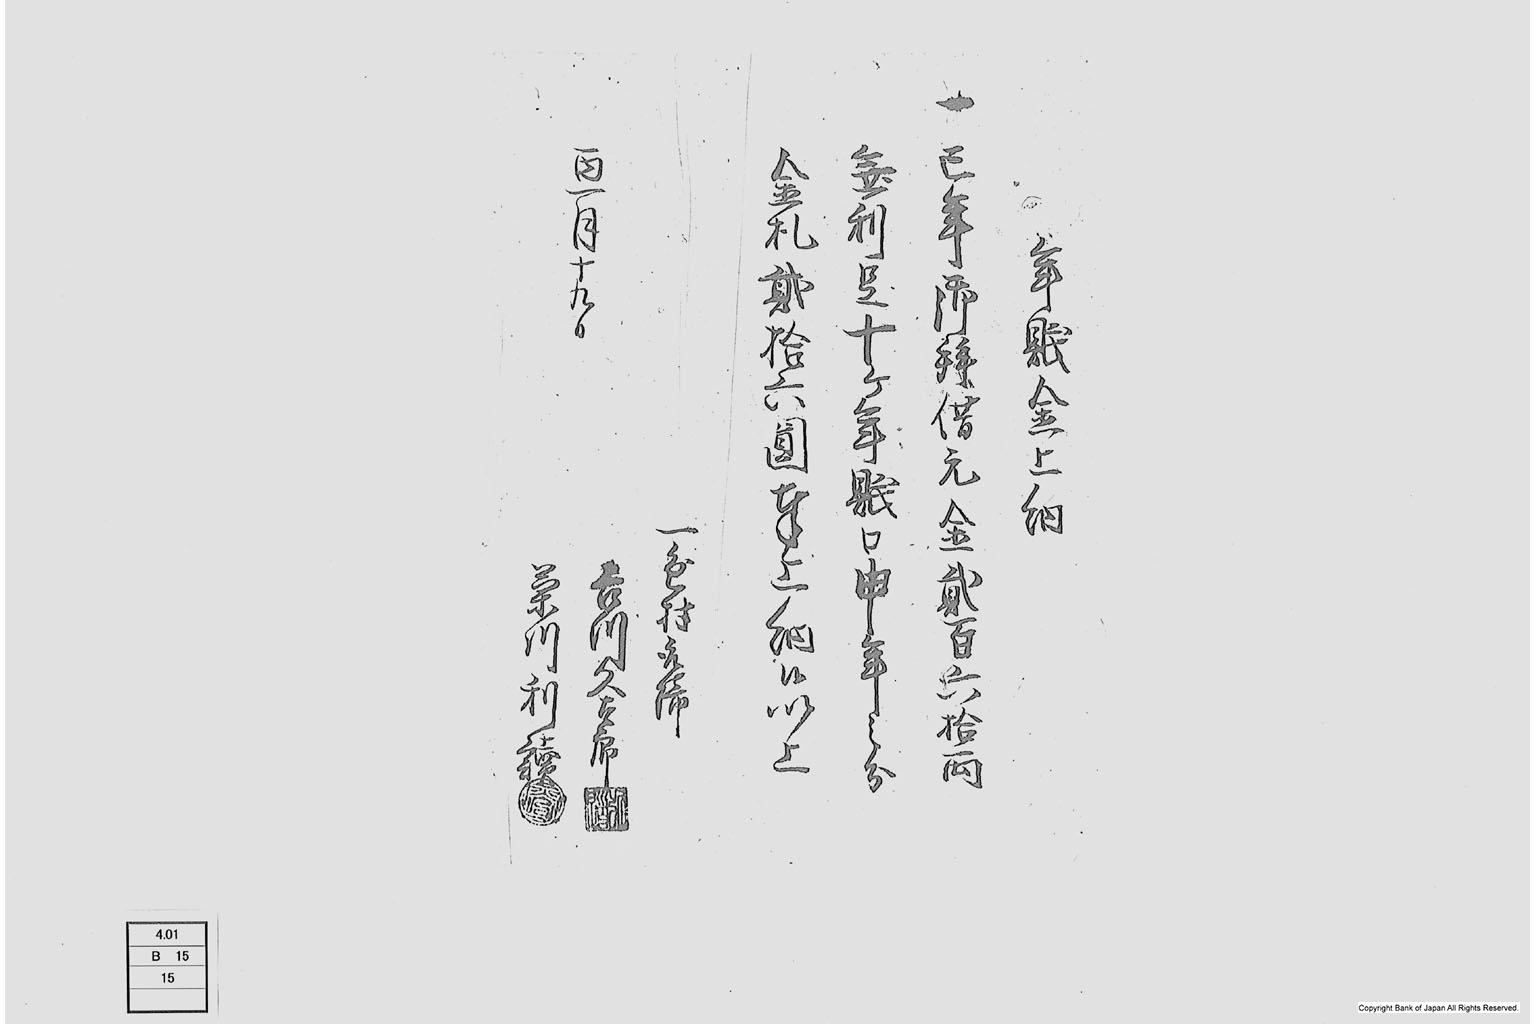 年賦金上納
一 巳年御拝借元金貳百六拾両
無利足十ケ年賦口申年之分
金札貳拾六圓奉上納候以上
一色村
吉川久左衛
栄川利
酉一月十九日
4.01
B 15
15
Copyright Bank of Japan All Rights Reserved.